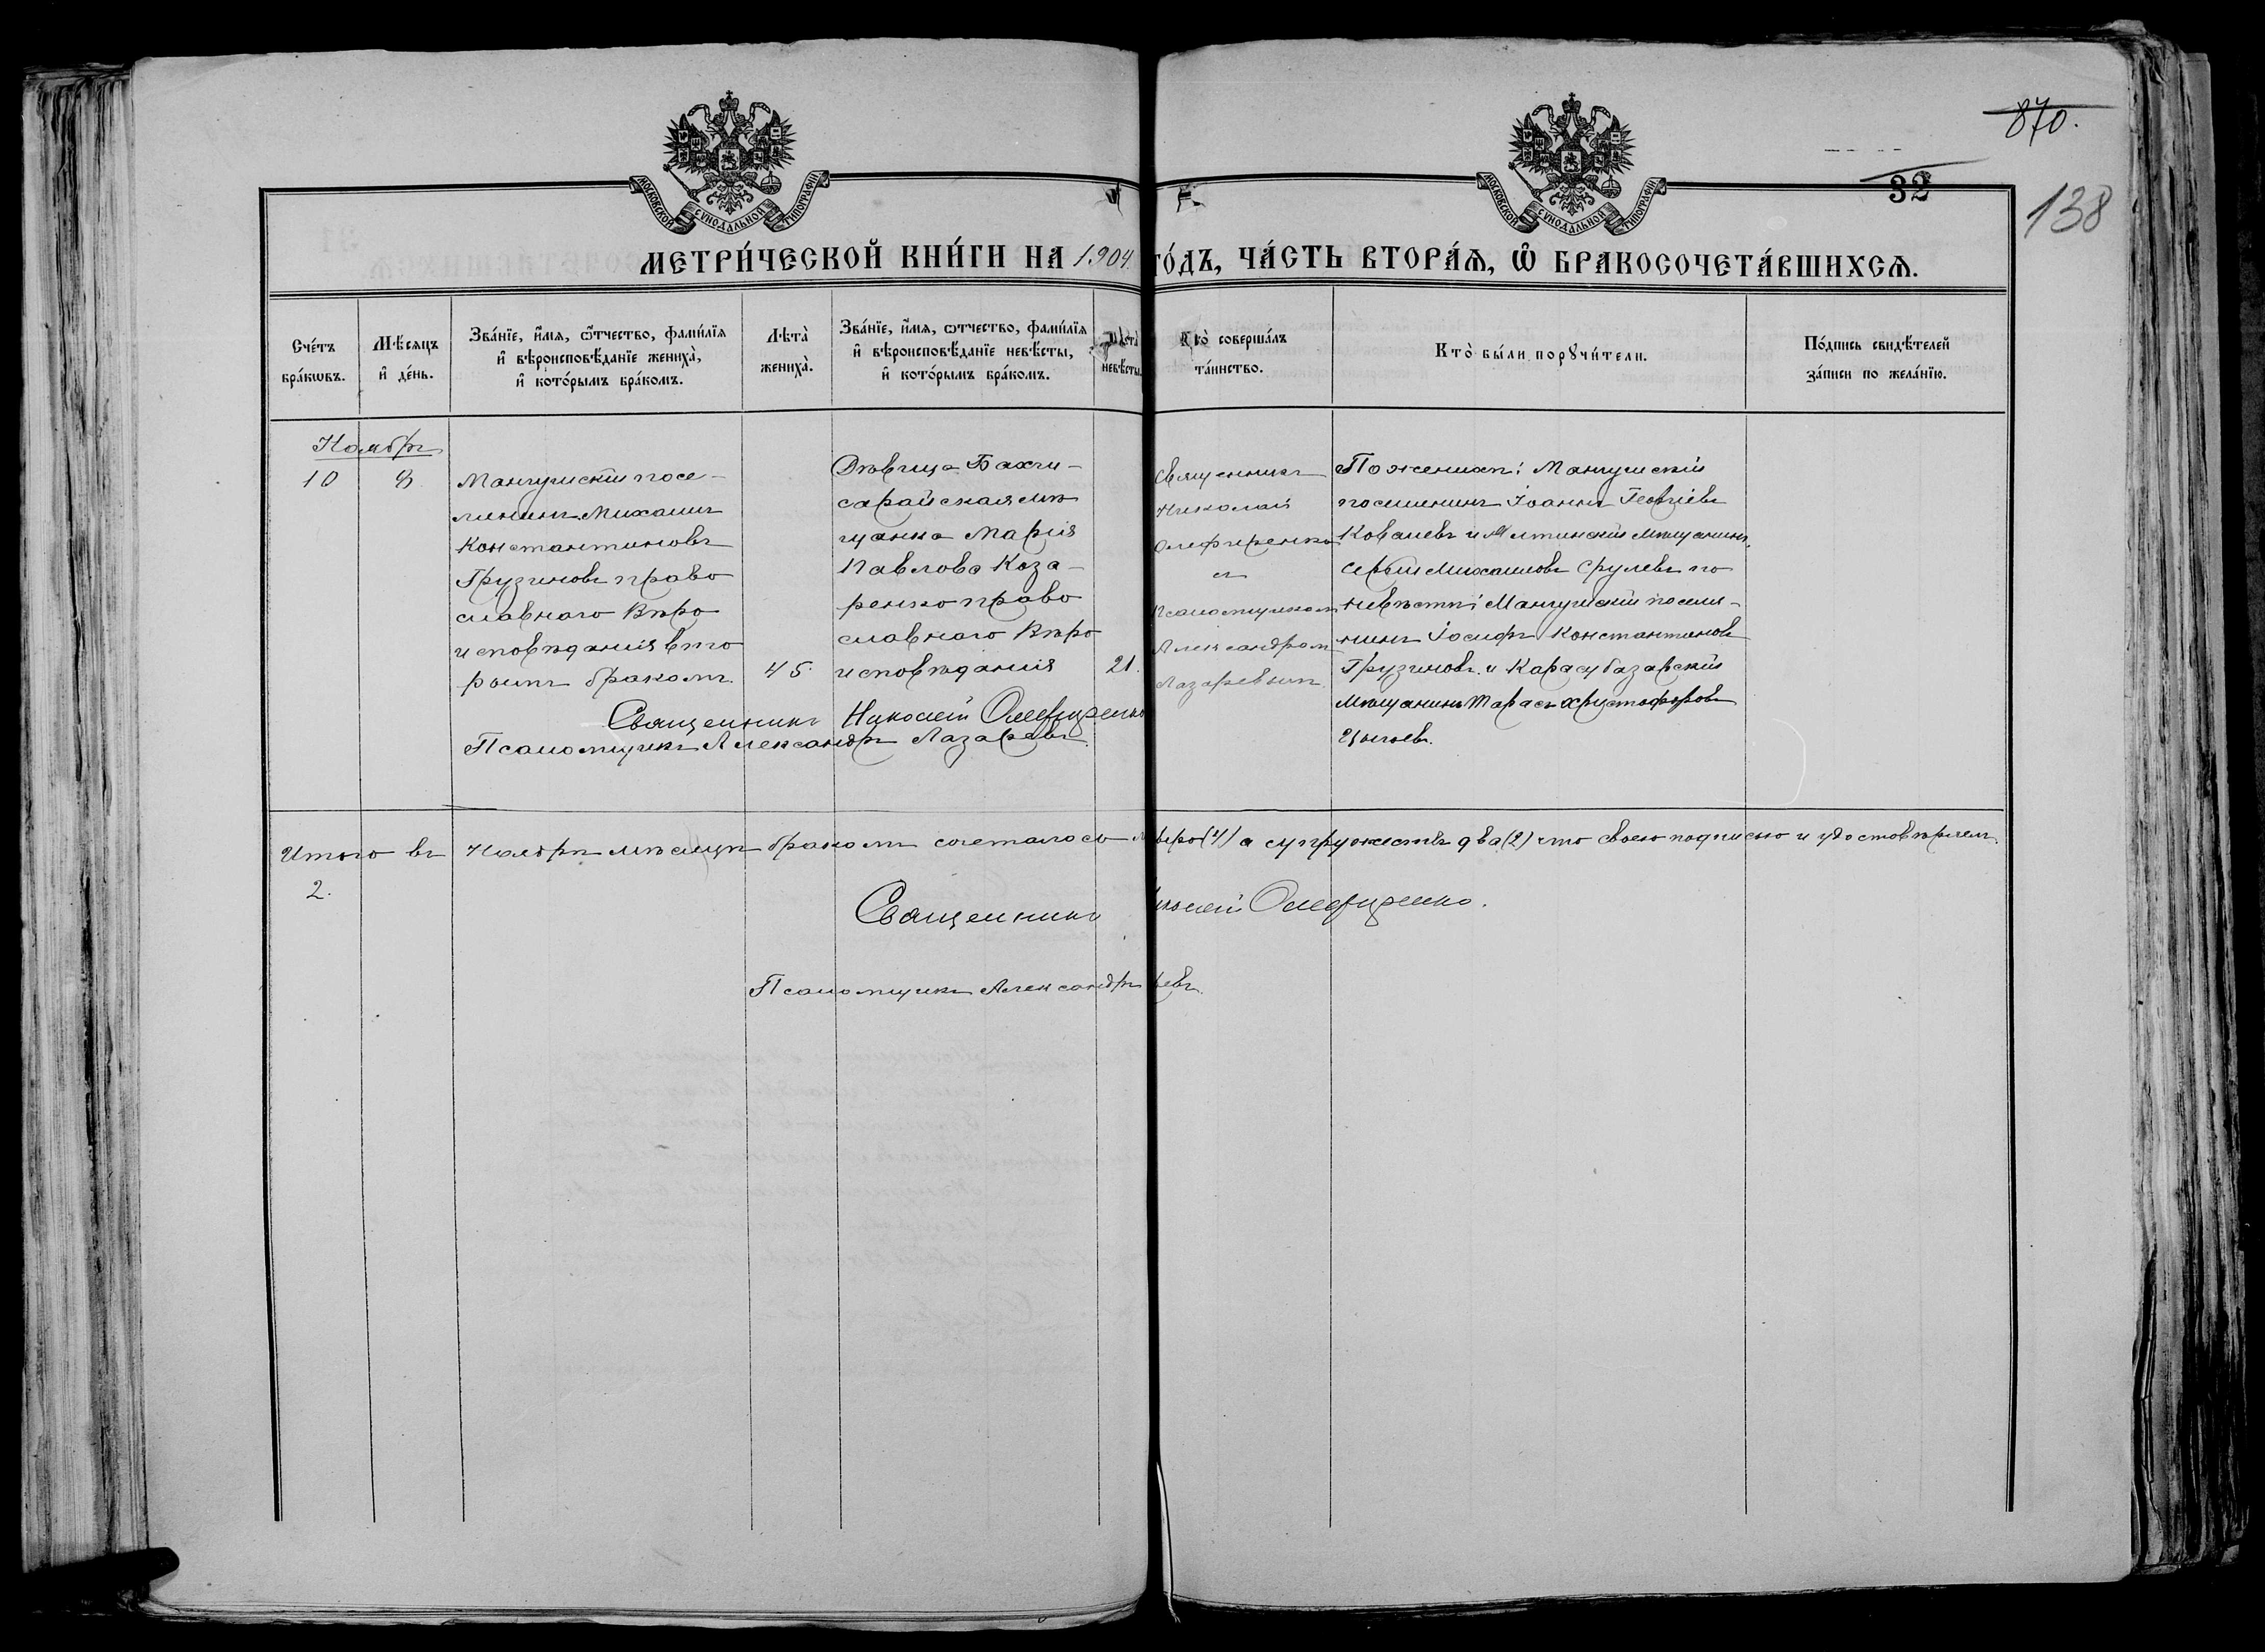 870.
32
138
МОСКОВСКОЙ СѴНОДАЛЬНОЙ ТИПОГРАФІИ
МОСКОВСКОЙ СѴНОДАЛЬНОЙ ТИПОГРАФІИ
МЕТРИ́ЧЕСКОЙ КНИ́ГИ НА 1904. ГО́ДЪ, ЧА́СТЬ ВТОРА́Ѧ, Ѡ҆ БРАКОСОЧЕТА́ВШИХСѦ.
Сче́тъ
бра́кѡвъ.
Мѣ́сяцъ
и҆ де́нь.
Зва́нїе, и҆́мя, ѻ҆́тчество, фами́лїя
и҆ вѣроисповѣ́данїе жениха̀,
и҆ кото́рымъ бра́комъ.
Лѣта̀
жениха̀.
Зва́нїе, и҆́мя, ѻтчество, фами́лїя
и҆ вѣроисповѣ́данїе невѣ́сты,
и҆ кото́рымъ бра́комъ.
Лѣта̀
невѣ́сты.
Кто̀ соверша́лъ
та́инство.
Кто̀ бы́ли порꙋчи́тели.
По́дпись свидѣ́телей
за́писи по жела́нїю.
Ноябрь
10
8
Мангушскій посе-
лянинъ Михаилъ
Константиновъ
Грузиновъ право
славнаго Вѣро
исповѣданія вто
рымъ бракомъ.
45.
Дѣвица Бахчи-
сарайская мѣ
щанка Марія
Павлова Коза-
ренко право
славнаго Вѣро
исповѣданія
21.
Священникъ
Николай
Олефиренко
съ
Псаломщикомъ
Александромъ
Лазаревымъ
По женихѣ: Мангушскій
поселянинъ Іоаннъ Георгіевъ
Ковалевъ и Ялтинскій мѣщанинъ
Сергѣй Михаиловъ Срулевъ по
невѣстѣ: Мангушскій поселя-
нинъ Іосифъ Константиновъ
Грузиновъ и Карасубазарскій
Мѣщанинъ Тарасъ Христофоровъ
Священникъ Николай Олефиренко
Псаломщикъ Александръ Лазаревъ.
Итого въ Ноябрѣ мѣсяцѣ бракомъ сочеталось веро (4) а супружествъ два (2) что своею подписью и удостовѣряемъ.
2.
Священникъ иколай Олефиренко.
Псаломщикъ Александръ ревъ.